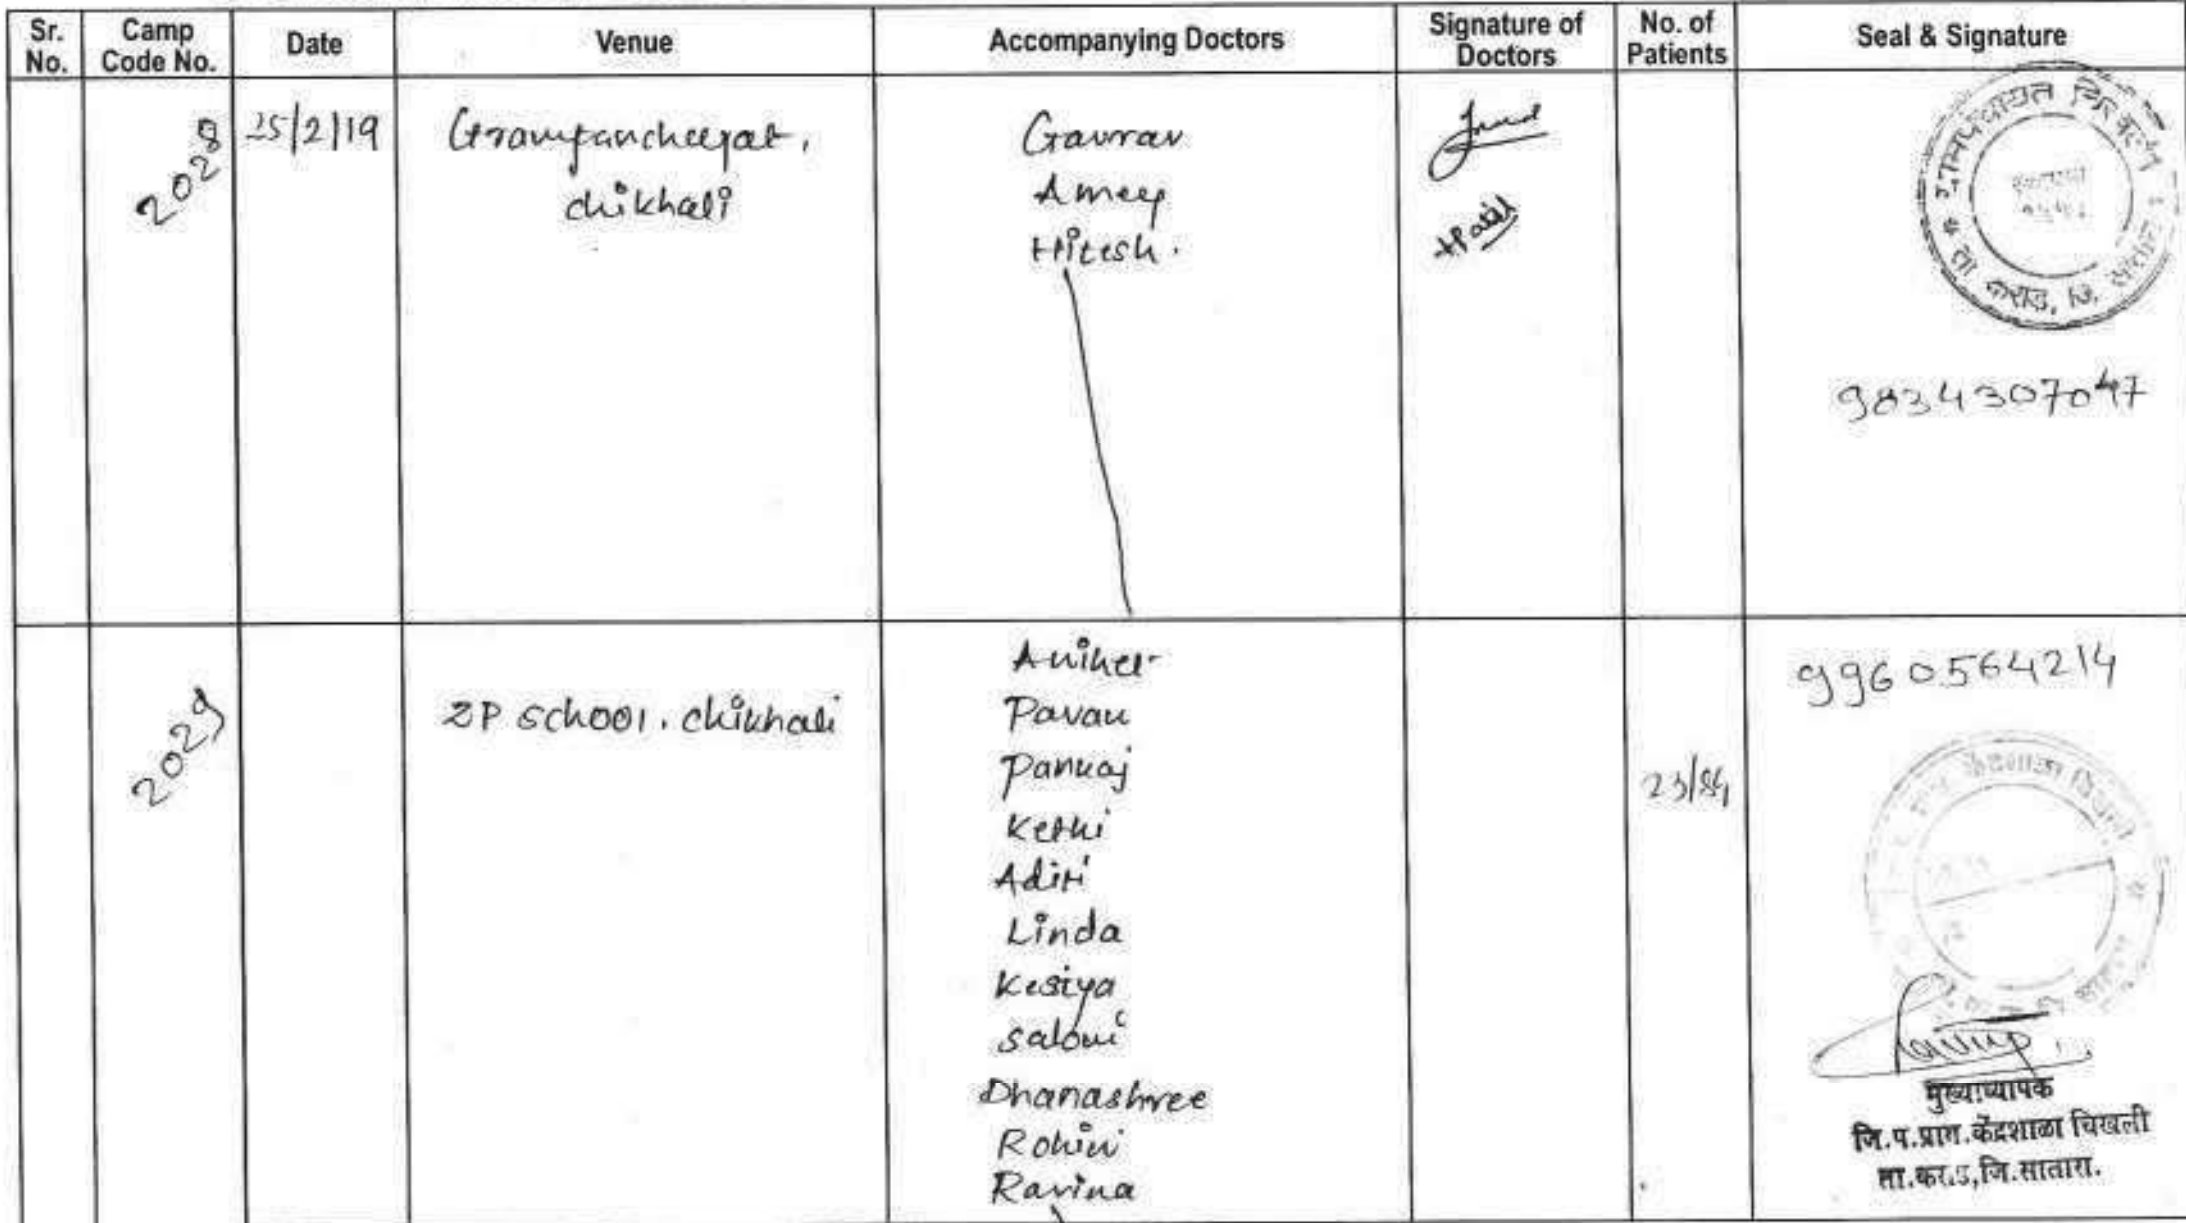 Sr. No. Camp Code No. Date Venue Accompanying Doctors Signature of Doctors No. of Patients Seal & Signature
2028 25/2/19 Grampancheyat, Gaurav
chikhali Ameey
Hitesh.
9834307047
2029 ZP school. chikhali Aniket
Pavan
Pankaj
Kethi
Aditi
Linda
Kesiya
saloni
Dhanashree
Rohini
Ravina
23/
9960564214
मुख्याध्यापक
जि.प.प्राथ.केंद्रशाळा चिखली
ता.कराड,जि.सातारा.